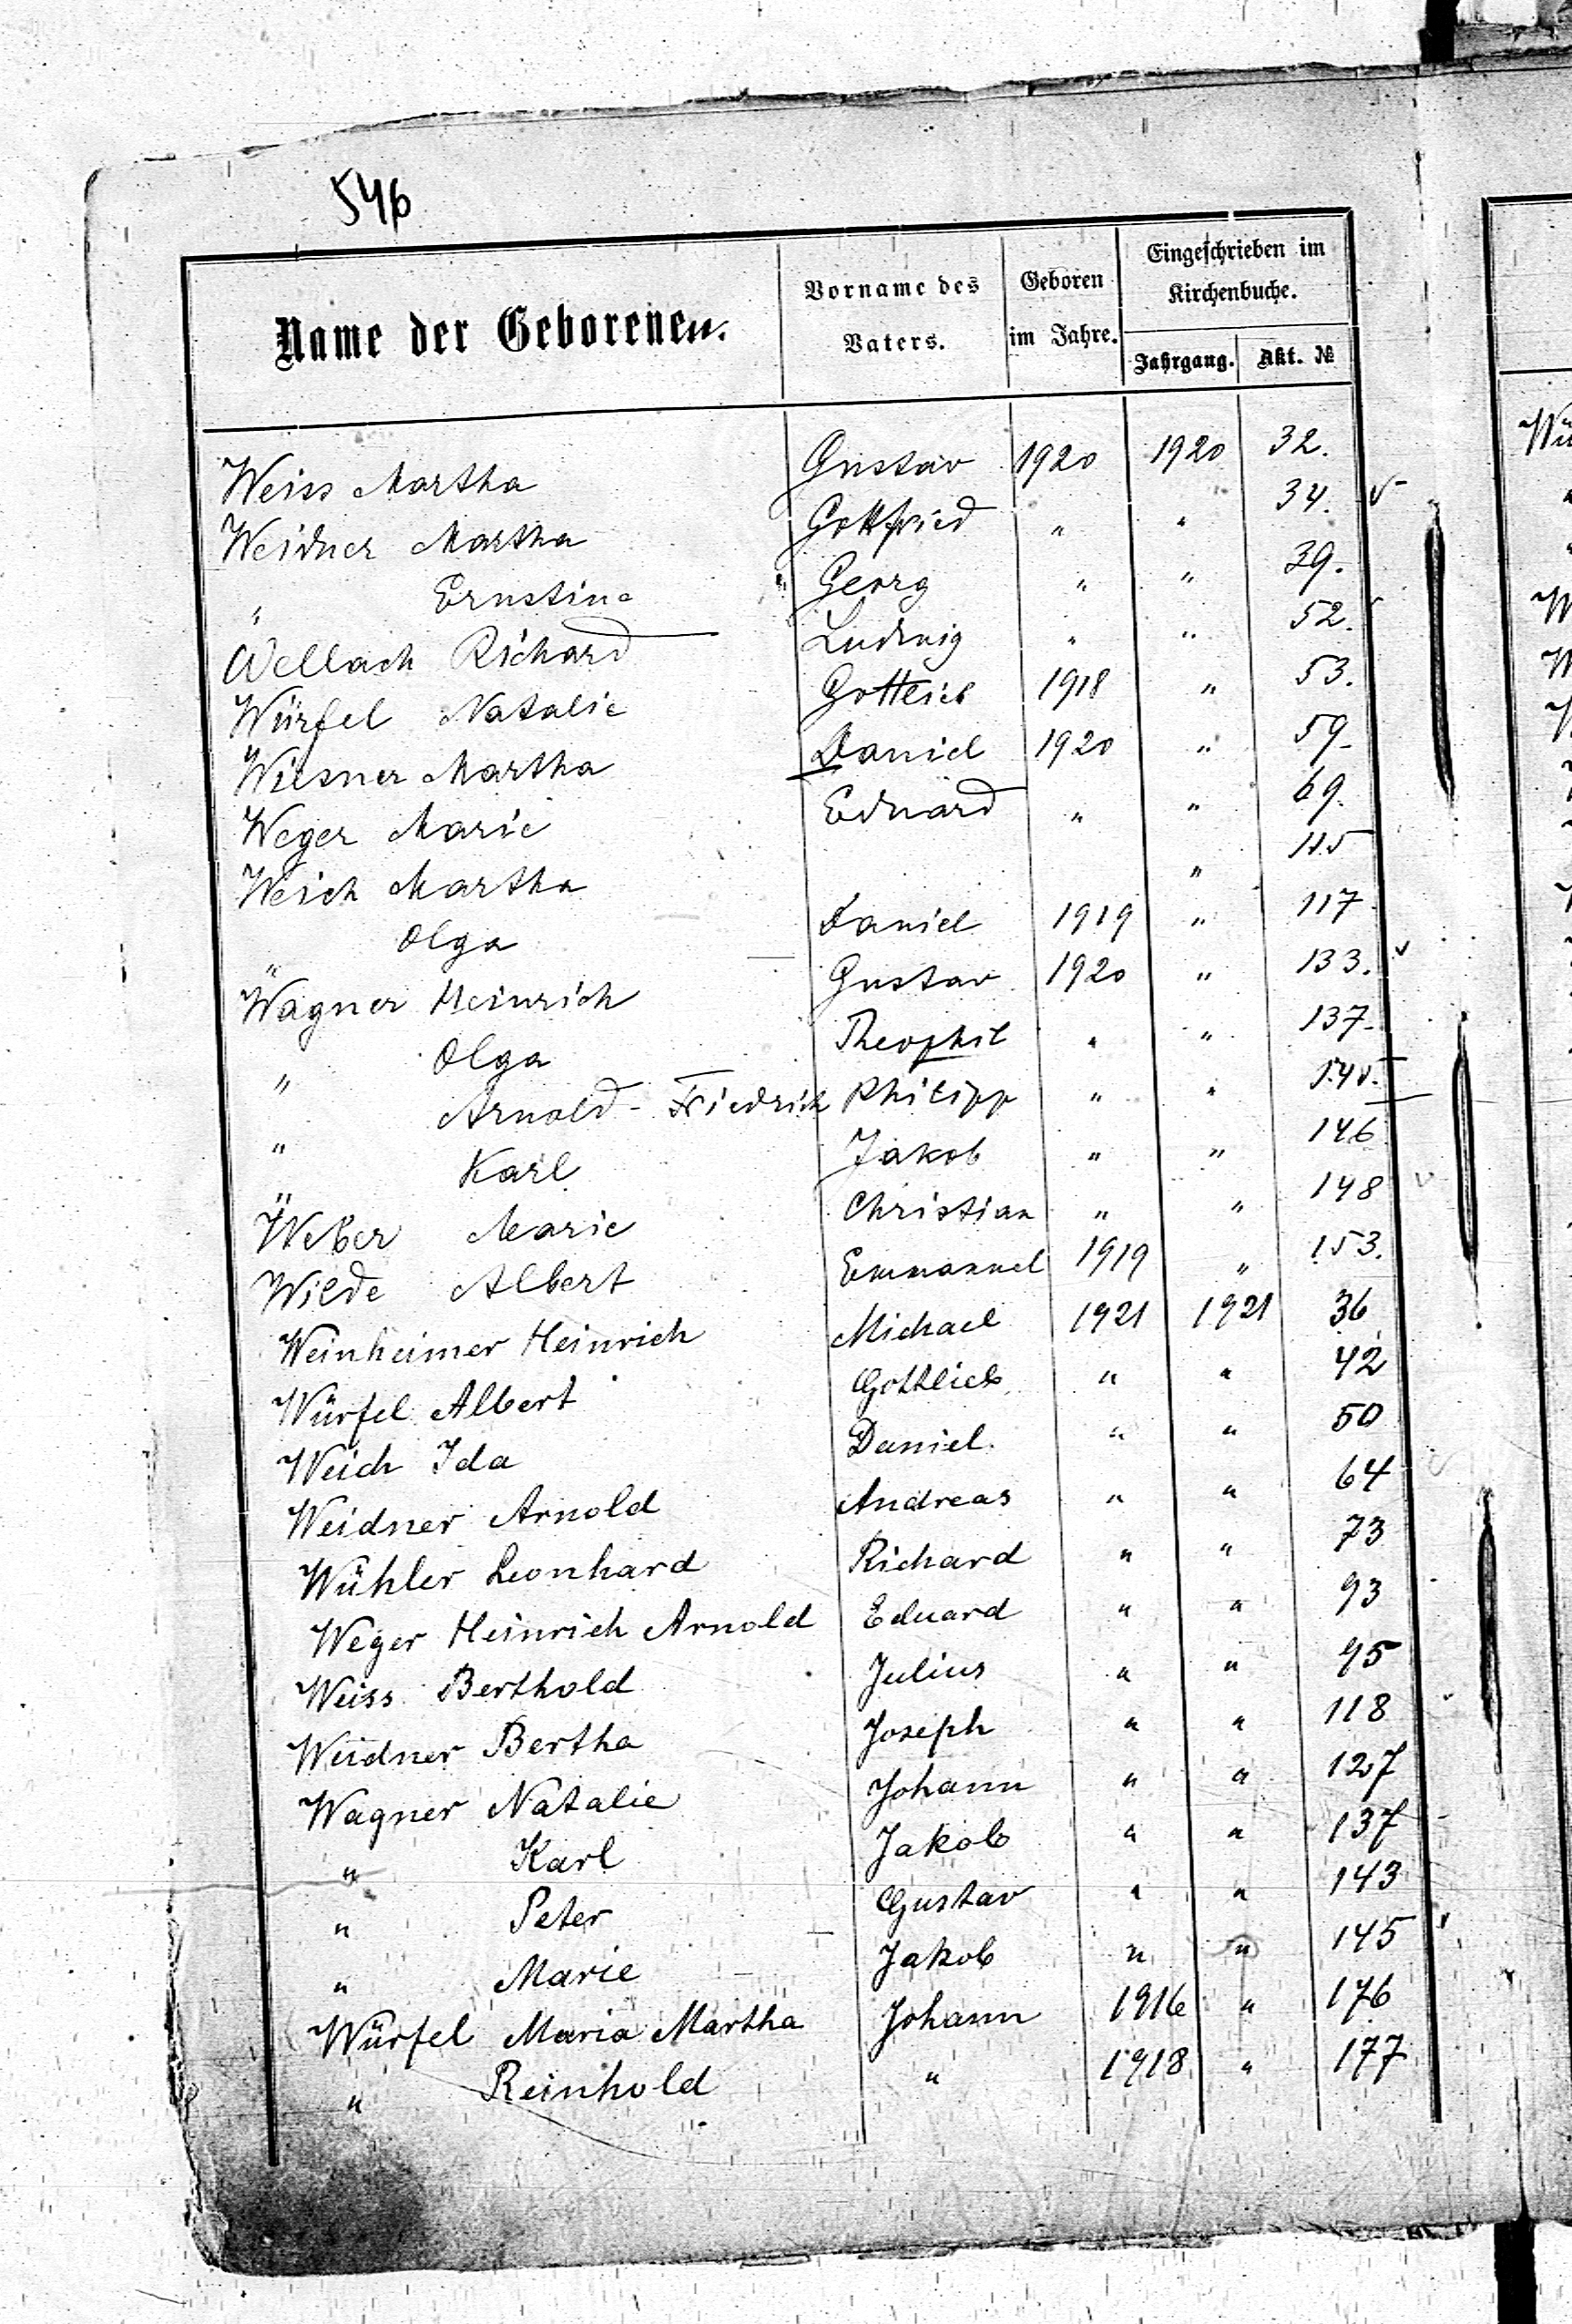 546
Name der Geborenen.
Vorname des Vaters.
Geboren im Jahre.
Eingeschrieben im Kirchenbuche.
Jahrgang. Akt. №
Weiss Martha Gustav 1920 1920 32.
Weidner Martha Gottfried " " 34. v
" Ernstine Georg " " 39.
Wellach Richard Ludwig " " 52.
Würfel Natalie Gottlieb 1918 " 53.
Wiesner Martha Daniel 1920 " 59
Weger Marie Eduard " " 69.
Weich Martha "
" Olga Daniel 1919 " 117
Wagner Heinrich Gustav 1920 " 133. v
" Olga Theophil " " 137
" Arnold-Friedrich Philipp " "
" Karl Jakob " " 146
Weber Marie Christian " " 148 v
Wilde Albert Emmanuel 1919 " 153.
Weinheimer Heinrich Michael 1921 1921 36
Würfel Albert Gottlieb " " 42
Weich Ida Daniel " " 50
Weidner Arnold Andreas " " 64
Wühler Leonhard Richard " " 73
Weger Heinrich Arnold Eduard " " 93
Weiss Berthold Julius " " 95
Weidner Bertha Joseph " " 118
Wagner Natalie Johann " " 127
" Karl Jakob " " 137
" Peter Gustav " " 143
" Marie Jakob " " 145
Würfel Maria Martha Johann 1916 " 176
" Reinhold " 1918 " 177